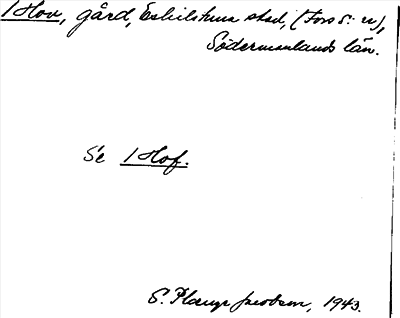 1 Hov, gård, Eskilstuna stad, (Fors s:n),
Södermanlands län.
Se 1 Hof.
S. Jacobson, 1943.